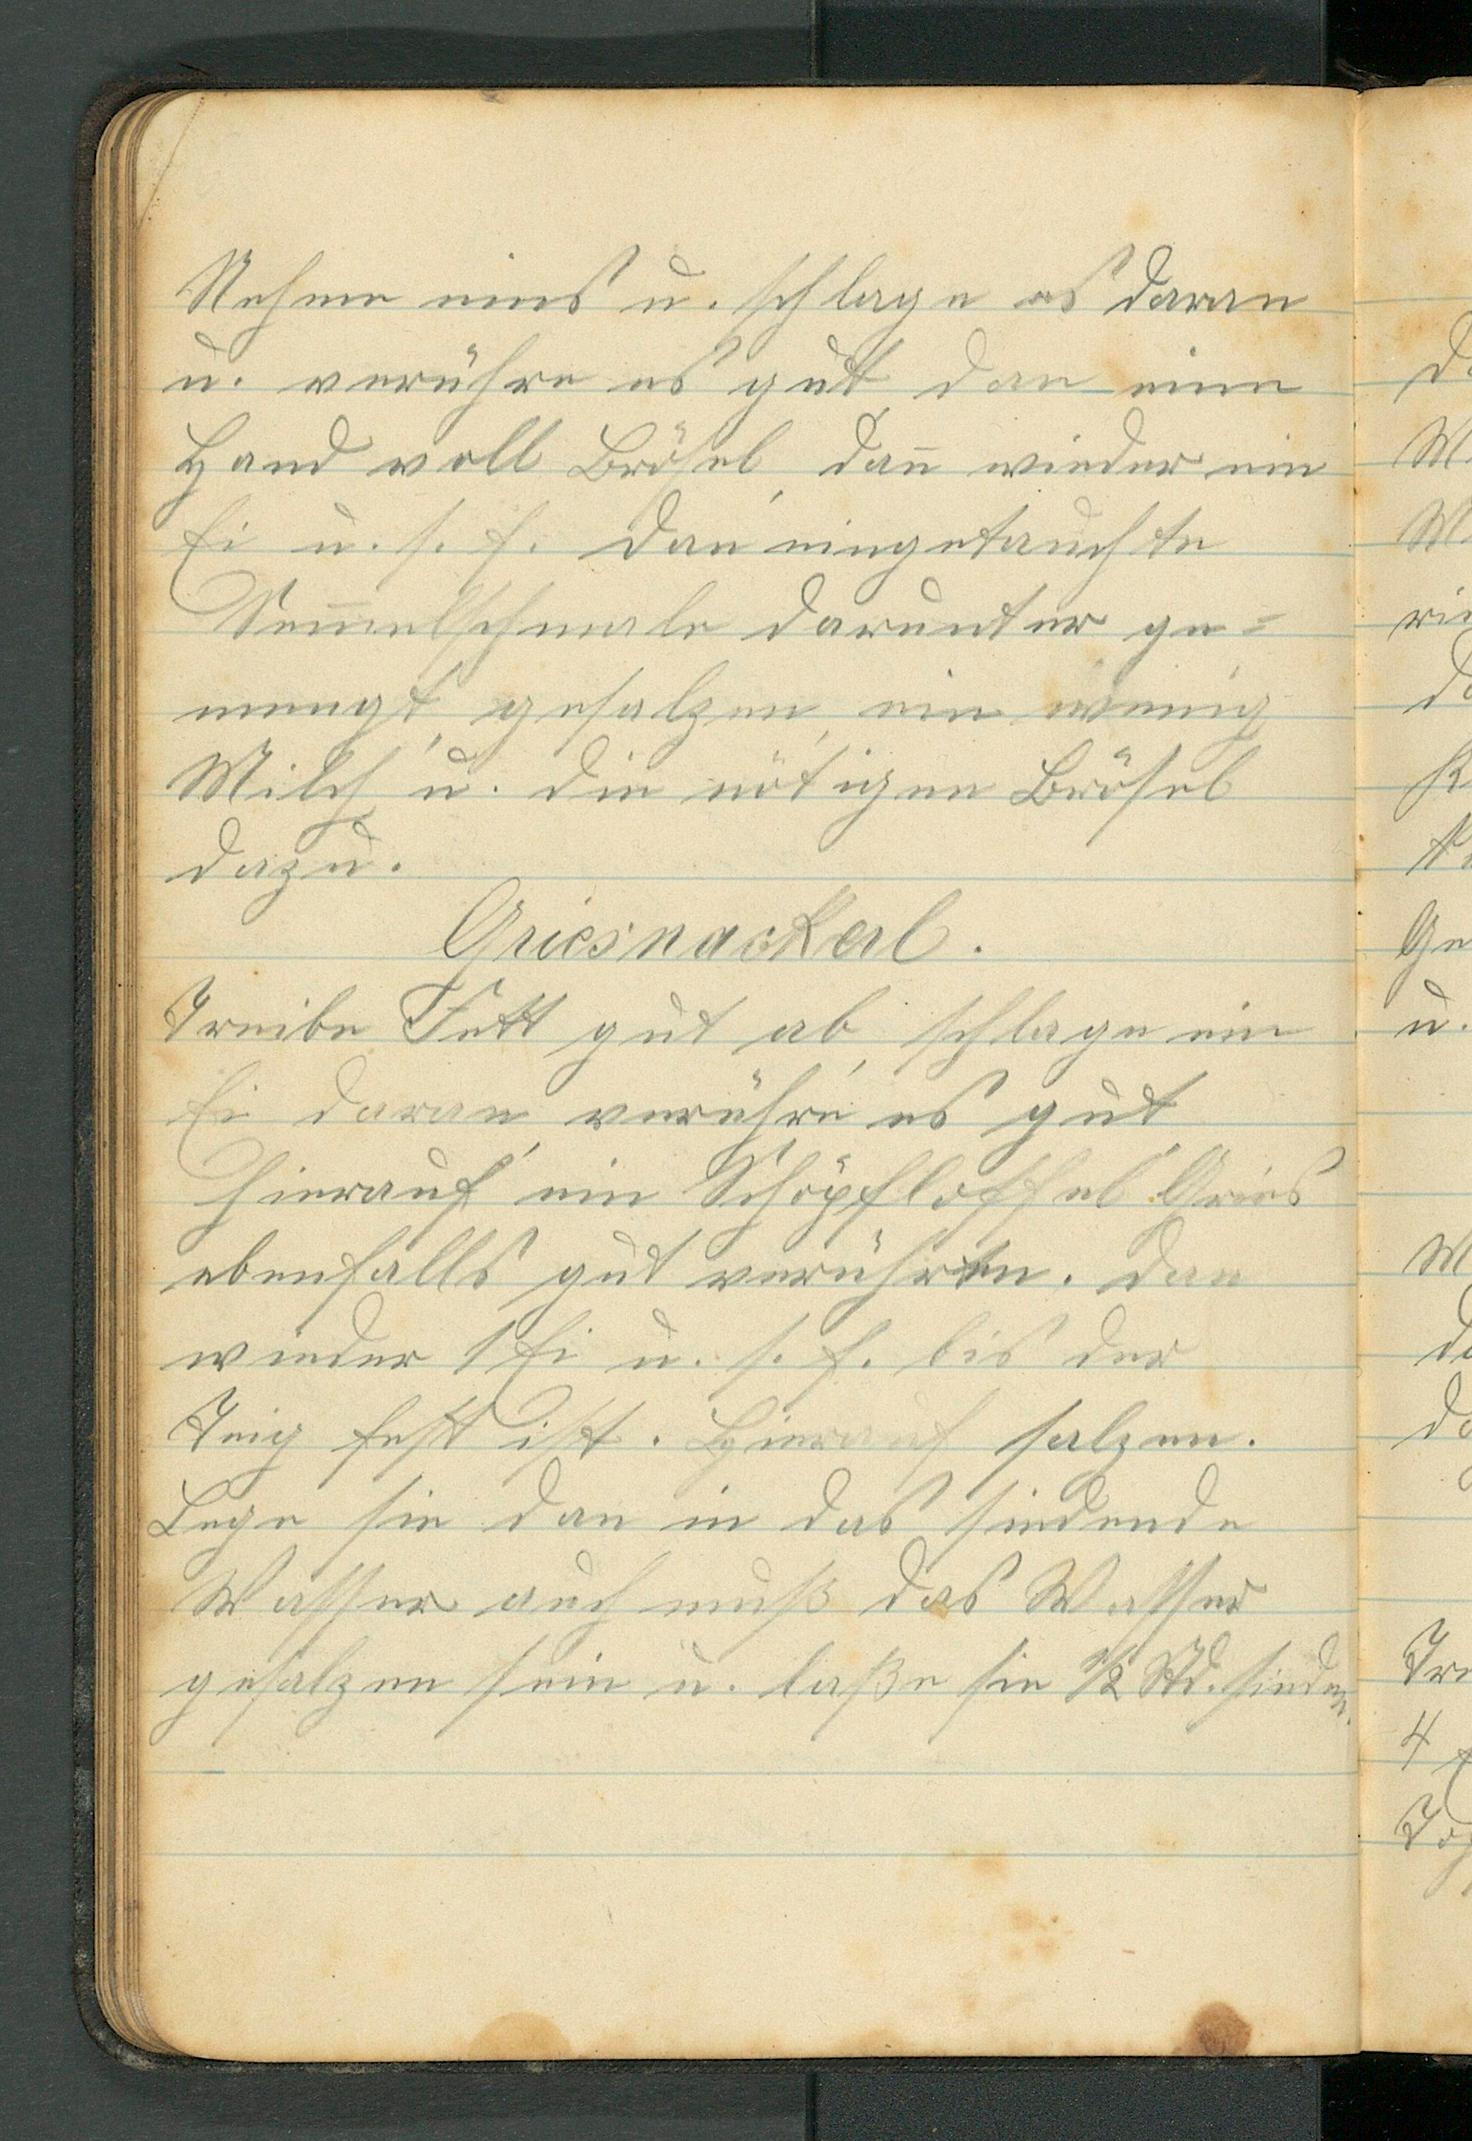 Nehme eins u. schlage es daran
u. verühre es gut dan eine
Hand voll Brösel, dan̄ wieder ein
Ei u. s. f. dan eingetauchte
Sem̄elschmale darunter ge=
mengt, gesalzen, ein wenig
Milch u. die nötigen Brösel
dazu.
Griesnackerl.
Treibe Fett gut ab, schlage ein
Ei daran verühre es gut
hierauf, ein Schöpfloffel Gries
ebenfalls gut verühren. dan
wieder 1 Ei u. s. f. bis der
Teig fest ist. Hierauf salzen.
Lege sie dan in das siedende
Wasser auch muß das Wasser
gesalzen sein u. laße sie 1/2 Std. sieden.